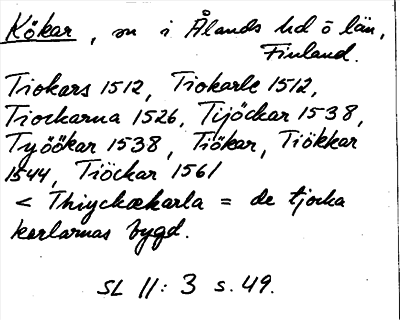 Kökar, sn i Ålands hd ö län,
Finland.
Tiokars 1512, Tiokarle 1512,
Tiockarna 1526, Tijöckar 1538,
Työökar 1538, Tiökar, Tiökkar
1544, Tiöckar 1561
< Thiyckækarla = de tjocka
karlarnas bygd.
SL 11: 3 s. 49.